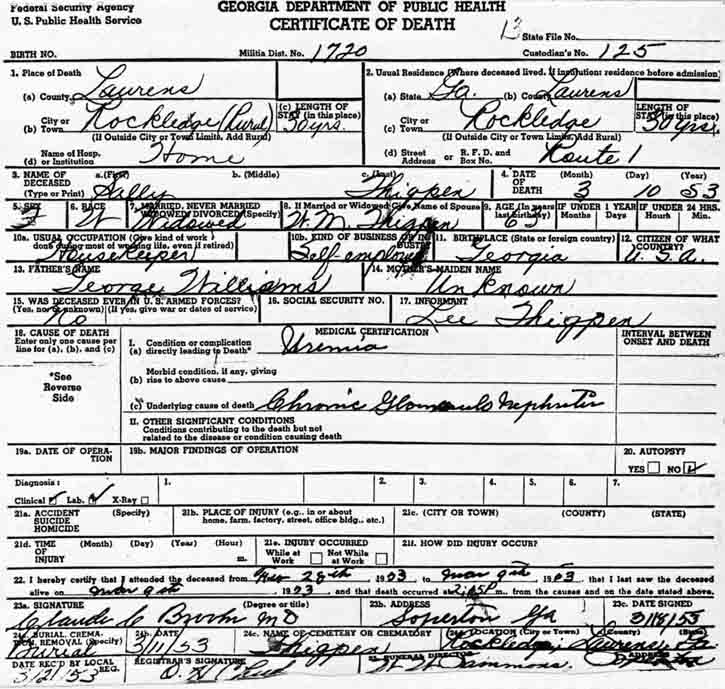 Federal Security Agency
U. S. Public Health Service
GEORGIA DEPARTMENT OF PUBLIC HEALTH
CERTIFICATE OF DEATH
13 State File No.
BIRTH NO. Militia Dist. No. 1720 Custodian's No. 125
1. Place of Death
(a) County Laurens
City or
(b) Town Rockledge (Rural)
(c) LENGTH OF
STAY (in this place)
30 yrs.
(If Outside City or Town Limits, Add Rural)
Name of Hosp.
(d) or Institution Home
2. Usual Residence (Where deceased lived. If institution: residence before admission)
(a) State Ga. (b) County Laurens
City or
(c) Town Rockledge
LENGTH OF
STAY (in this place)
30 yrs.
(If Outside City or Town Limits, Add Rural)
(d) Street Address or R. F. D. and Box No. Route 1
3. NAME OF DECEASED
(Type or Print)
a. (First) b. (Middle) c. (Last) Thigpen
4. DATE OF DEATH (Month) (Day) (Year)
3 10 53
5. SEX F
6. RACE W
7. MARRIED, NEVER MARRIED
WIDOWED DIVORCED (Specify)
Widowed
8. If Married or Widowed Give Name of Spouse
W. M. Thigpen
9. AGE (In years last birthday) 63
IF UNDER 1 YEAR
Months Days
IF UNDER 24 HRS.
Hours Min.
10a. USUAL OCCUPATION (Give kind of work done during most of working life, even if retired)
Housekeeper
10b. KIND OF BUSINESS OR INDUSTRY
Self employed
11. BIRTHPLACE (State or foreign country)
Georgia
12. CITIZEN OF WHAT COUNTRY?
U. S. A.
13. FATHER'S NAME
George Williams
14. MOTHER'S MAIDEN NAME
Unknown
15. WAS DECEASED EVER IN U. S. ARMED FORCES?
(Yes, no or unknown) (If yes, give war or dates of service)
No
16. SOCIAL SECURITY NO.
17. INFORMANT
Lee Thigpen
18. CAUSE OF DEATH
Enter only one cause per
line for (a), (b), and (c)
*See
Reverse
Side
MEDICAL CERTIFICATION
I. Condition or complication
(a) directly leading to Death* Uremia
Morbid condition, if any, giving
(b) rise to above cause
(c) Underlying cause of death Chronic
II. OTHER SIGNIFICANT CONDITIONS
Conditions contributing to the death but not
related to the disease or condition causing death
INTERVAL BETWEEN
ONSET AND DEATH
19a. DATE OF OPERATION
19b. MAJOR FINDINGS OF OPERATION
20. AUTOPSY?
YES NO
Diagnosis:
Clinical Lab. X-Ray
1. 2. 3. 4. 5. 6. 7.
21a. ACCIDENT (Specify)
SUICIDE
HOMICIDE
21b. PLACE OF INJURY (e.g., in or about
home, farm, factory, street, office bldg., etc.)
21c. (CITY OR TOWN) (COUNTY) (STATE)
21d. TIME OF INJURY (Month) (Day) (Year) (Hour) m.
21e. INJURY OCCURRED
While at Work Not While at Work
21f. HOW DID INJURY OCCUR?
22. I hereby certify that I attended the deceased from 28th 19 53 to Mar 9th 19 53 that I last saw the deceased
alive on Mar 9th 19 53 and that death occurred at m. from the causes and on the date stated above.
23a. SIGNATURE (Degree or title)
Claude C M D
23b. ADDRESS
Soperton Ga
23c. DATE SIGNED
3/18/53
24a. BURIAL, CREMATION, REMOVAL (Specify)
Burial
24b. DATE
3/11/53
24c. NAME OF CEMETERY OR CREMATORY
Thigpen
24d. LOCATION (City or Town) (County) (State)
Rockledge, Laurens, Ga
DATE REC'D BY LOCAL REG.
3/21/53
REGISTRAR'S SIGNATURE
FUNERAL DIRECTOR ADDRESS
Sammons.